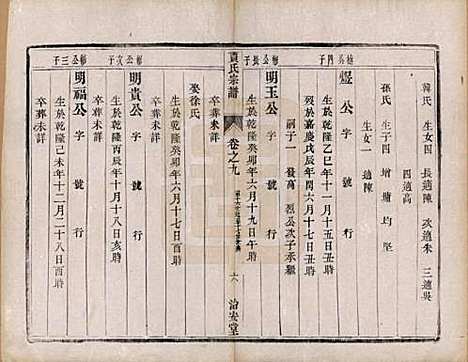 韓氏 女四 長適陳 次適朱 三適吳
四適高
孫氏 生子四 增 墉 均 堅
生女一 適陳
公四子
煜公 字 號 行
生於乾隆乙巳年十一月十五日丑時
歿於嘉慶戊辰年閏六月十七日丑時
嗣子一 發萬 烈公次子承繼
公長子
明玉公 字 號 行
生於乾隆癸卯年六月十九日午時
卒葬未詳
貢氏宗譜
卷之九
六
治安堂
娶徐氏
生於乾隆癸卯年六月十七日酉時
卒葬未詳
公次子
明貴公 字 號 行
生於乾隆丙辰年十月十八日亥時
卒葬未詳
公三子
明福公 字 號 行
生於乾隆己未年十二月二十八日酉時
卒葬未詳